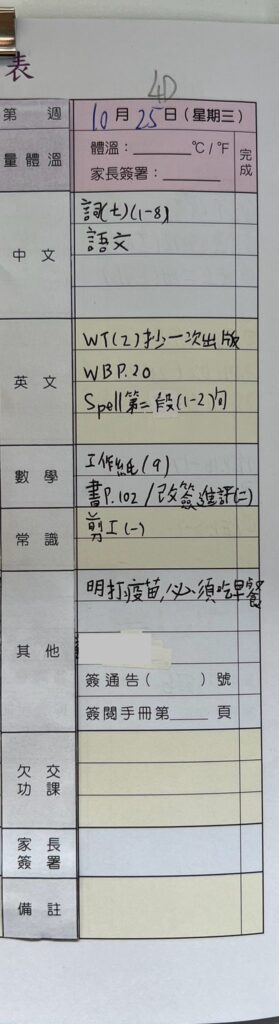 4D
表
第 週 10月25日(星期三)
量體溫 體溫:______℃/℉ 完成
家長簽署:______
中文 詞(七)(1-8)
語文
英文 WT(2)抄一次出版
WBP.20
Spell第二段(1-2)句
數學 工作紙(9)
書P.102/改簽進評(二)
常識 剪工(一)
其他 明打疫苗,必須吃早餐
簽通告( )號
簽閱手冊第____頁
欠交功課
家長簽署
備註